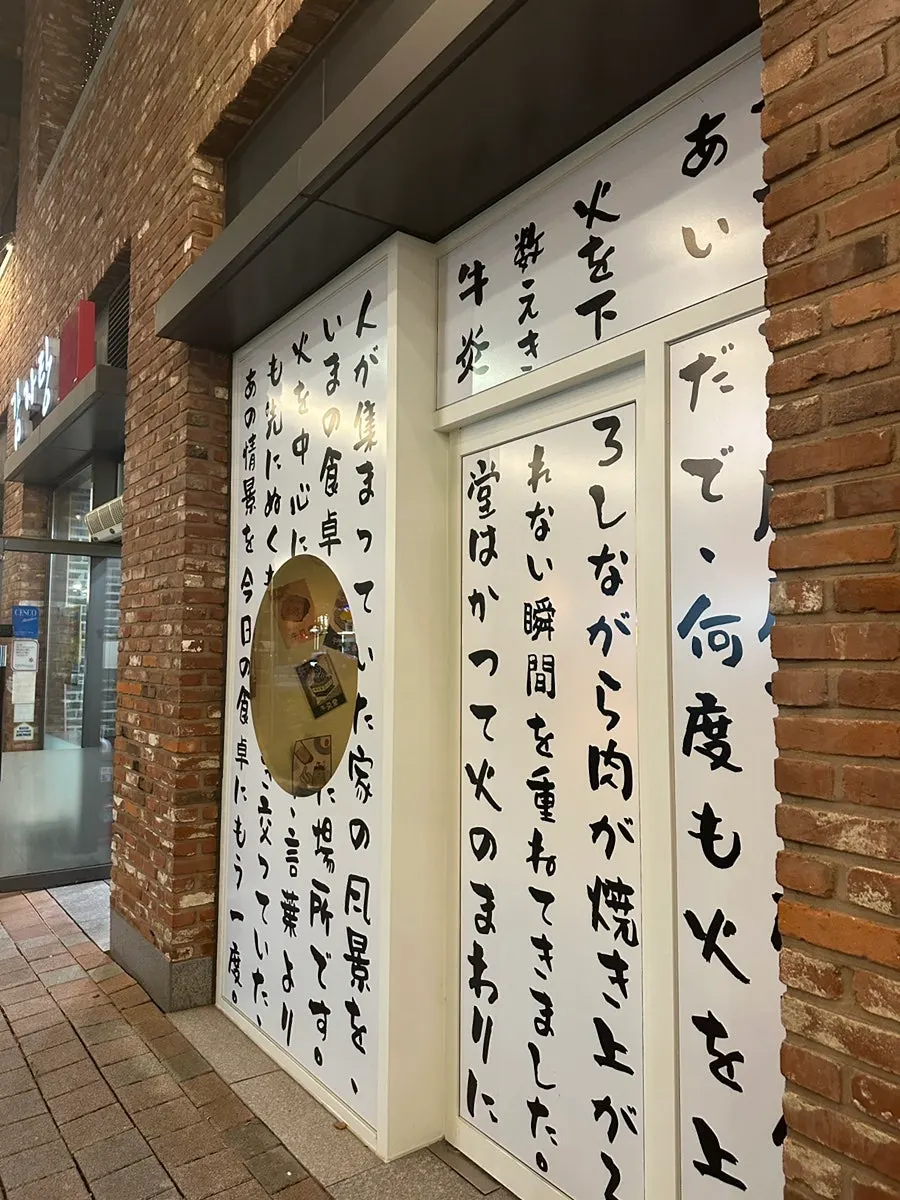 あいだで、何度も火を上
火を下ろしながら肉が焼き上がる
数えきれない瞬間を重ねてきました。
牛炎堂はかつて火のまわりに
人が集まっていた家の风景を、
いまの食卓 場所です。
火を中心に 言葉より
も先にぬく 交っていた、
あの情景を今日の食卓にもう一度。
CESCO